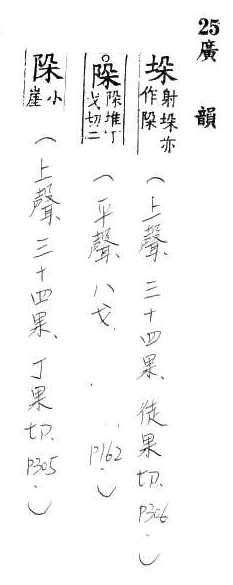 25 廣韻
垛 射垛亦作陊（上聲、三十四果、徒果切、P306.）
陊 陊堆丁戈切二（平聲、八戈、P162.）
陊 小崖（上聲、三十四果、丁果切、P305.）